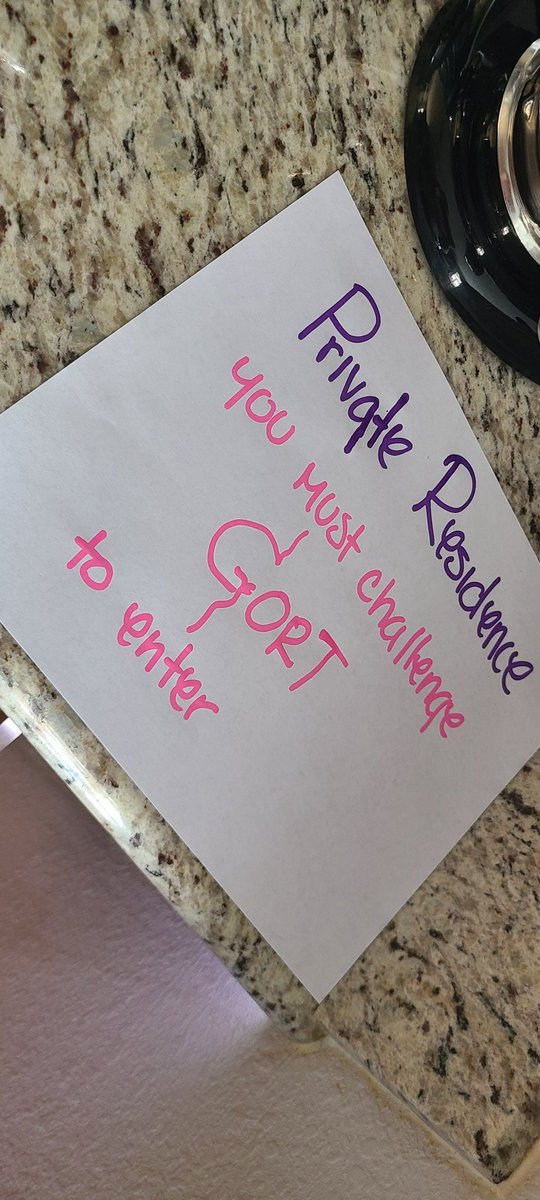 Private Residence
you must challenge
GORT
to enter